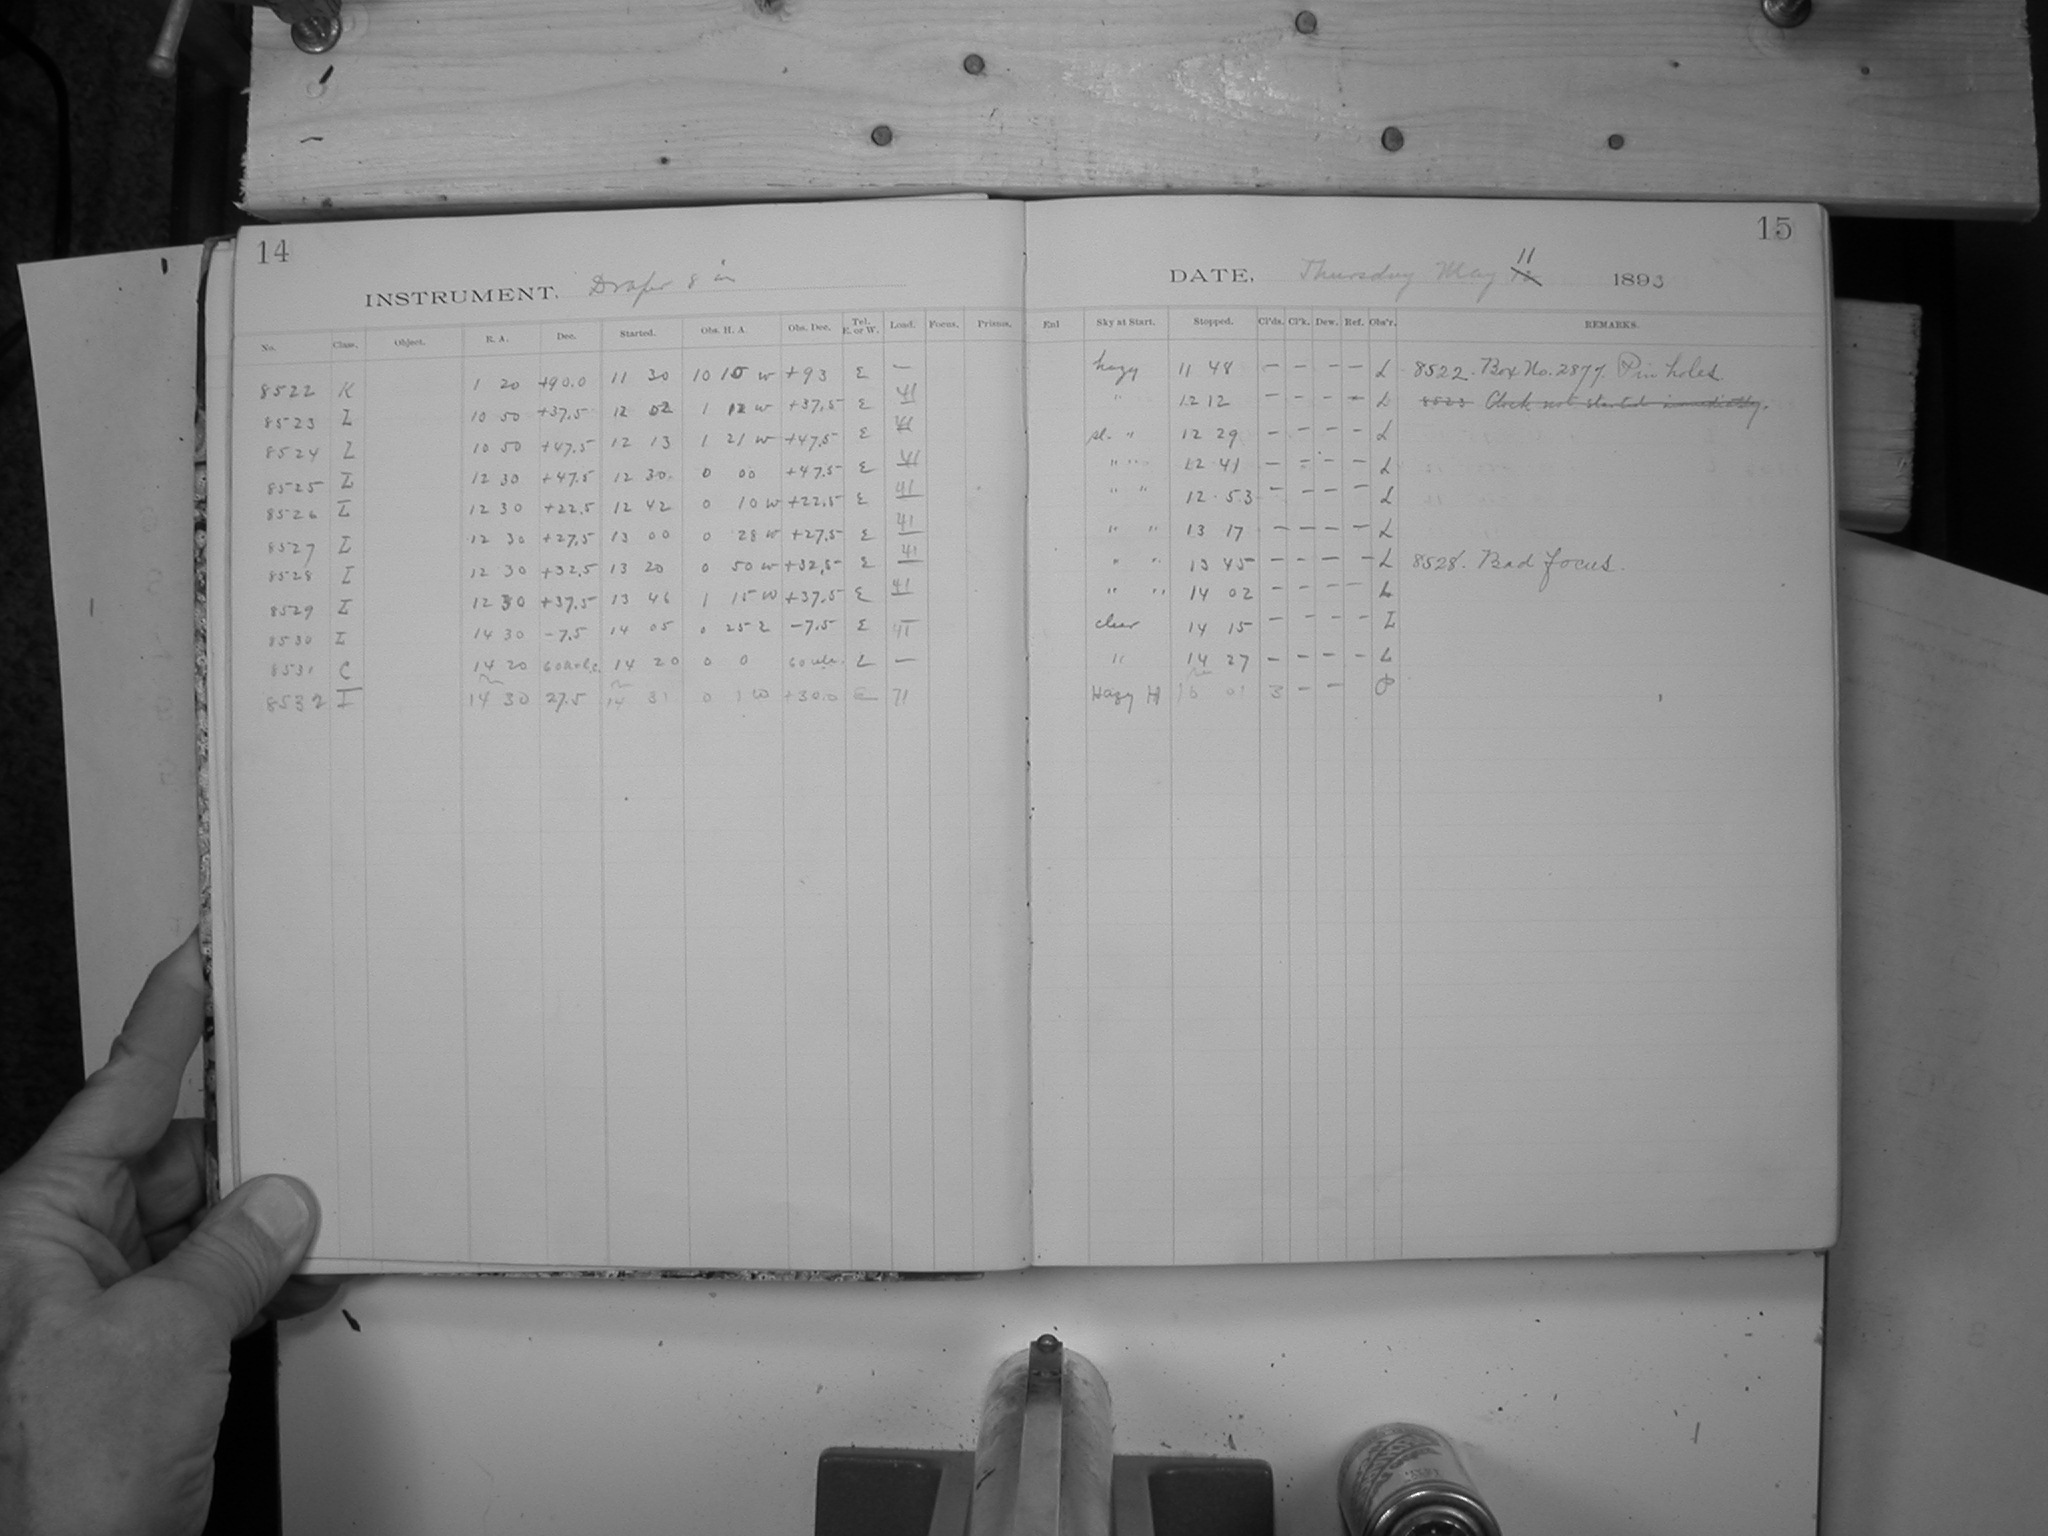 14
INSTRUMENT. Draper 8 in
No. Class. Object. R. A. Dec. Started. Obs. H. A. Obs. Dec. Tel. E. or W. Load. Focus. Prisms.
8522 K 1 20 +90.0 11 30 10 10 w +93 E —
8523 I 10 50 +37.5 12 02 1 12 w +37.5 E 41
8524 I 10 50 +47.5 12 13 1 21 w +47.5 E 41
8525 I 12 30 +47.5 12 30 0 00 +47.5 E 41
8526 I 12 30 +22.5 12 42 0 10 w +22.5 E 41
8527 I 12 30 +27.5 13 00 0 28 w +27.5 E 41
8528 I 12 30 +32.5 13 20 0 50 w +32.5 E 41
8529 I 12 30 +37.5 13 46 1 15 w +37.5 E 41
8530 I 14 30 -7.5 14 05 0 25 E -7.5 E 41
8531 C 14 20 14 20 0 0 —
8532 I 14 30 27.5 14 31 0 1 w +30.0 E 71
15
DATE, Thursday May 11 1893
Enl Sky at Start. Stopped. Cl'ds. Cl'k. Dew. Ref. Obs'r. REMARKS.
hazy 11 48 — — — — L 8522. Box No. 2877. Pin holes.
" 12 12 — — — — L 8523 Clock not started immediately.
sl. " 12 29 — — — — L
" " 12 41 — — — — L
" " 12 53 — — — — L
" " 13 17 — — — — L
" " 13 45 — — — — L 8528. Bad focus.
" " 14 02 — — — — L
clear 14 15 — — — — L
" 14 27 — — — — L
Hazy H 15 01 3 — — P